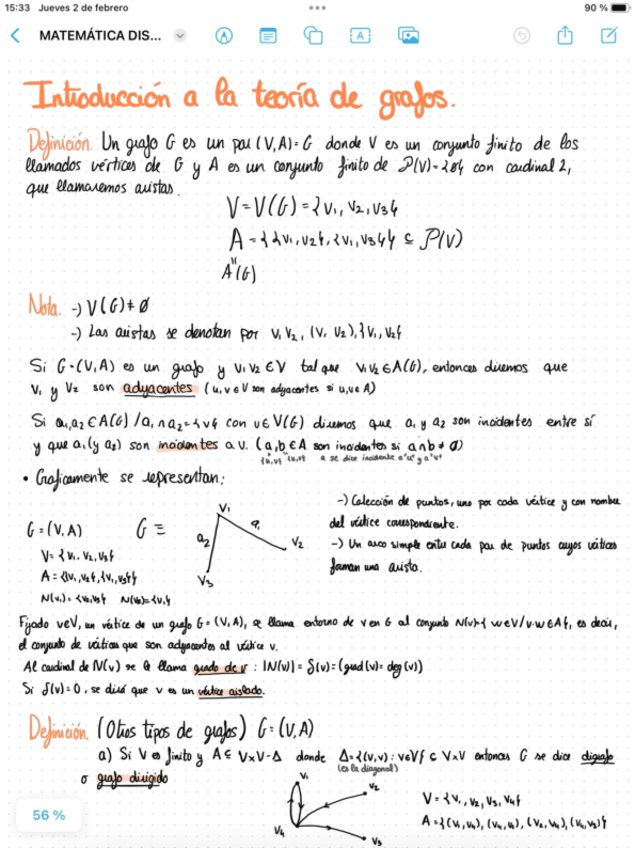 15:33 Jueves 2 de febrero
90 %
MATEMÁTICA DIS...
Introducción a la teoría de grafos.
Definición. Un grafo G es un par (V,A)=G donde V es un conjunto finito de los
llamados vértices de G y A es un conjunto finito de P(V)-{∅} con cardinal 2,
que llamaremos aristas.
V=V(G)={v₁, v₂, v₃}
A={{v₁,v₂}, {v₁,v₃}} ⊆ P(V)
A(G)
Nota. -) V(G)≠∅
-) Las aristas se denotan por v₁v₂, (v₁ v₂), {v₁,v₂}
Si G=(V,A) es un grafo y v₁v₂∈V tal que v₁v₂∈A(G), entonces diremos que
v₁ y v₂ son adyacentes (u,v∈V son adyacentes si u,v∈A)
Si a₁,a₂∈A(G) / a₁∩a₂={v} con v∈V(G) diremos que a₁ y a₂ son incidentes entre sí
y que a₁ (y a₂) son incidentes a v. (a,b∈A son incidentes si a∩b≠∅)
{u,v} {u,v} a se dice incidente a "u" y a "v"
• Gráficamente se representan:
G=(V,A)
V={v₁,v₂,v₃}
A={{v₁,v₂},{v₁,v₃}}
N(v₁)={v₂,v₃} N(v₂)={v₁}
G≡
v₁
a₂
a₁
v₂
v₃
-) Colección de puntos, uno por cada vértice y con nombre
del vértice correspondiente.
-) Un arco simple entre cada par de puntos cuyos vértices
forman una arista.
Fijado v∈V, un vértice de un grafo G=(V,A), se llama entorno de v en G al conjunto N(v)={w∈V/v·w∈A}, es decir,
el conjunto de vértices que son adyacentes al vértice v.
Al cardinal de N(v) se le llama grado de v : |N(v)|=δ(v)=(grad(v)=deg(v))
Si δ(v)=0, se dirá que v es un vértice aislado.
Definición. (Otros tipos de grafos) G=(V,A)
a) Si V es finito y A⊆V×V-Δ donde Δ={(v,v): v∈V}⊂V×V entonces G se dice digrafo
(es la diagonal)
o grafo dirigido
v₁
v₂
v₄
v₃
V={v₁,v₂,v₃,v₄}
A={(v₁,v₄),(v₄,v₁),(v₂,v₄),(v₄,v₃)}
56 %